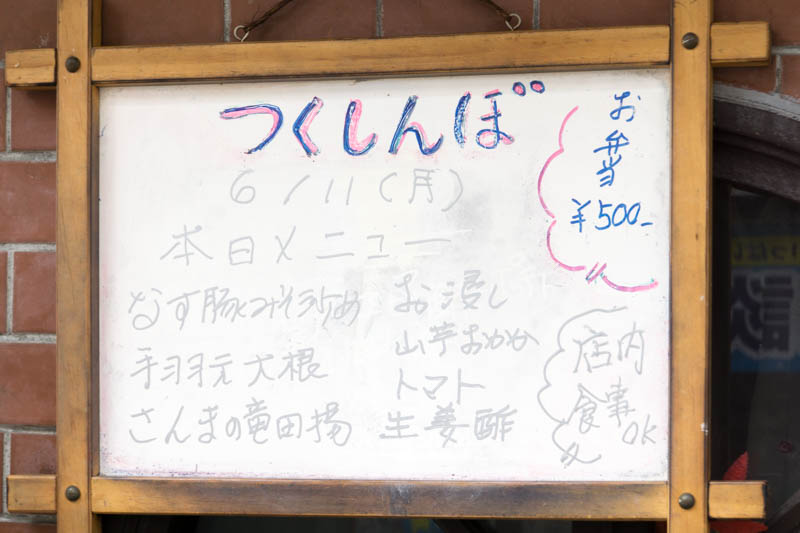 つくしんぼ
お弁当
¥500-
6/11(月)
本日メニュー
なす豚みそ炒め
手羽元大根
さんまの竜田揚
お浸し
山芋おかか
トマト
生姜酢
店内
食事
OK